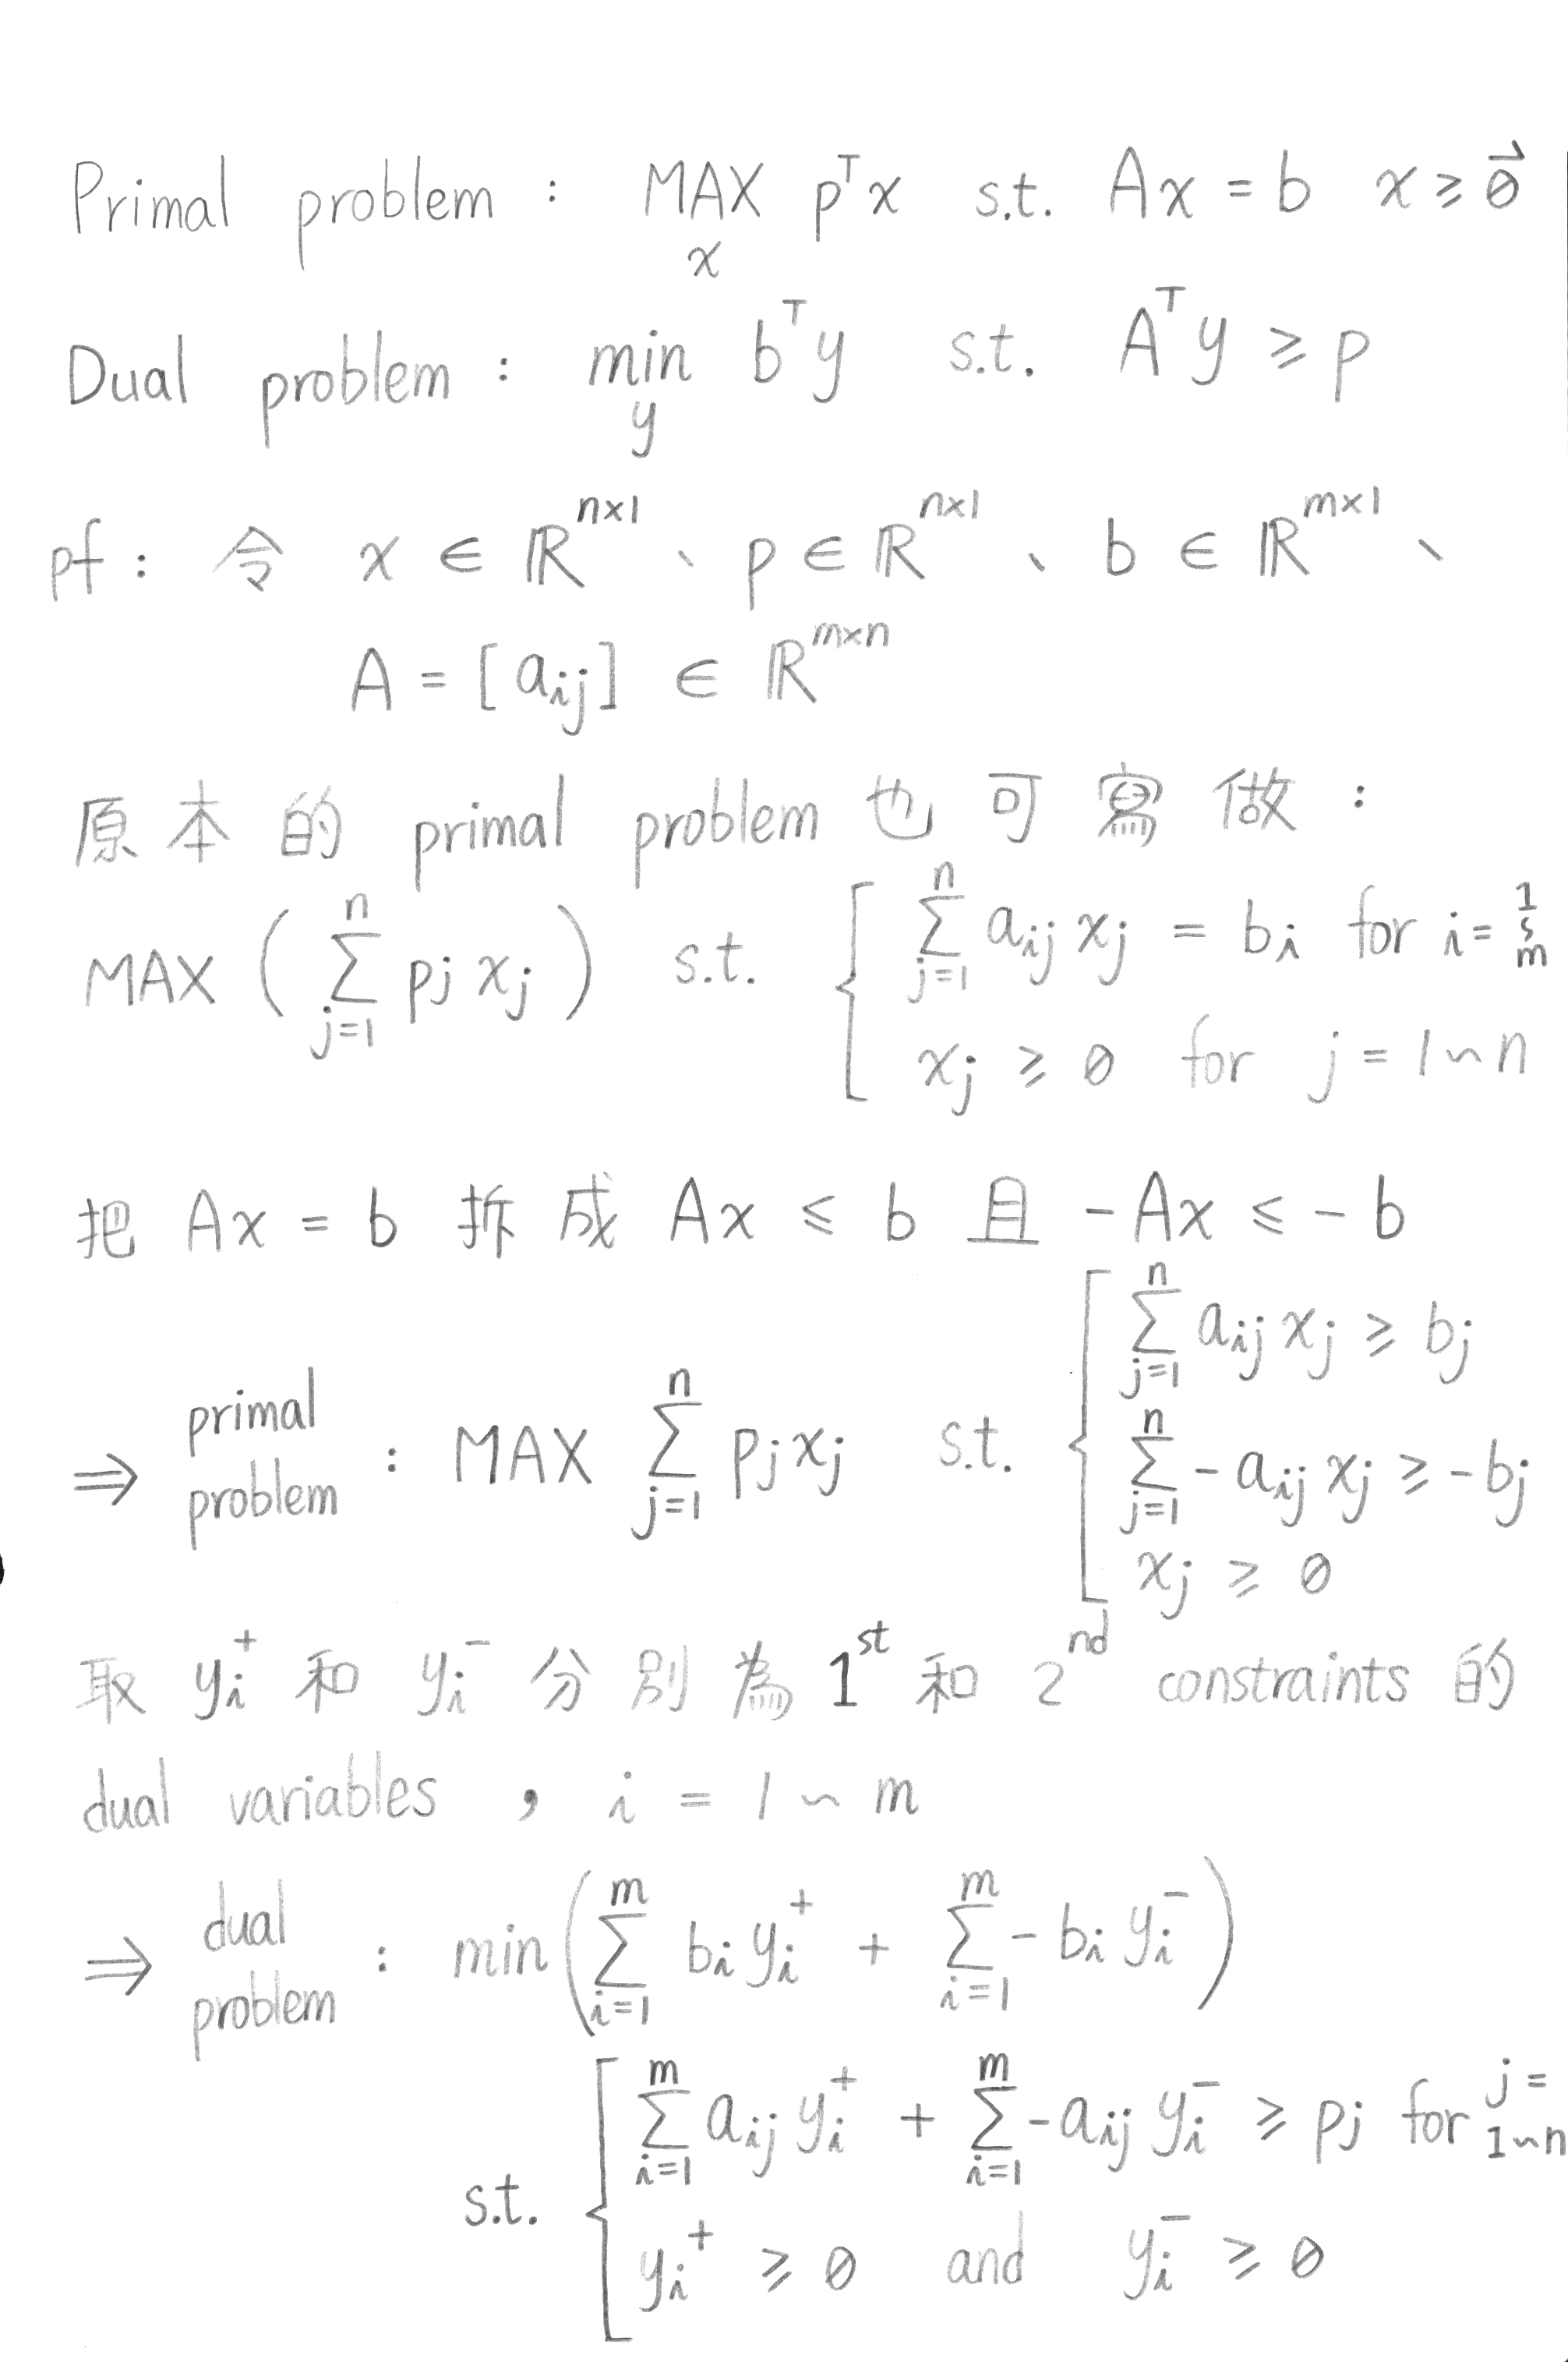 Primal problem : MAX pᵀx s.t. Ax = b x ≥ 0⃗
x
Dual problem : min bᵀy s.t. Aᵀy ≥ p
y
pf : 令 x ∈ ℝⁿˣ¹ 、 p ∈ ℝⁿˣ¹ 、 b ∈ ℝᵐˣ¹ 、
A = [aᵢⱼ] ∈ ℝᵐˣⁿ
原本的 primal problem 也可寫做 :
MAX ( ∑ⱼ₌₁ⁿ pⱼ xⱼ ) s.t. { ∑ⱼ₌₁ⁿ aᵢⱼ xⱼ = bᵢ for i = 1 ~ m
xⱼ ≥ 0 for j = 1 ~ n
把 Ax = b 拆成 Ax ≤ b 且 -Ax ≤ -b
⇒ primal problem : MAX ∑ⱼ₌₁ⁿ pⱼxⱼ s.t. { ∑ⱼ₌₁ⁿ aᵢⱼ xⱼ ≥ bⱼ
∑ⱼ₌₁ⁿ -aᵢⱼ xⱼ ≥ -bⱼ
xⱼ ≥ 0
取 yᵢ⁺ 和 yᵢ⁻ 分別為 1ˢᵗ 和 2ⁿᵈ constraints 的
dual variables , i = 1 ~ m
⇒ dual problem : min ( ∑ᵢ₌₁ᵐ bᵢ yᵢ⁺ + ∑ᵢ₌₁ᵐ -bᵢ yᵢ⁻ )
s.t. { ∑ᵢ₌₁ᵐ aᵢⱼ yᵢ⁺ + ∑ᵢ₌₁ᵐ -aᵢⱼ yᵢ⁻ ≥ pⱼ for j = 1 ~ n
yᵢ⁺ ≥ 0 and yᵢ⁻ ≥ 0